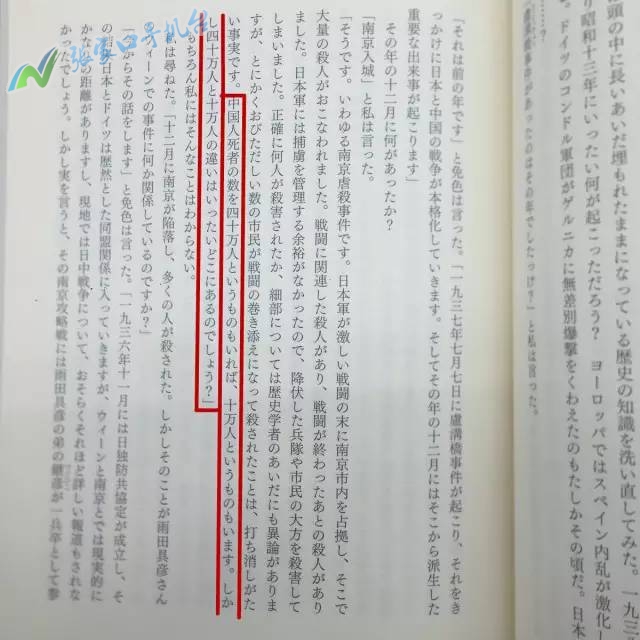 頭の中に長いあいだ埋もれたままになっている歴史の知識を洗い直してみた。一九三
昭和十三年にいったい何が起こっただろう？　ヨーロッパではスペイン内乱が激化
、ドイツのコンドル軍団がゲルニカに無差別爆撃をくわえたのもたしかその頃だ。日本
事件があったのはその年でしたっけ？」と私は言った。
「それは前の年です」と免色は言った。「一九三七年七月七日に盧溝橋事件が起こり、それをき
っかけに日本と中国の戦争が本格化していきます。そしてその年の十二月にはそこから派生した
重要な出来事が起こります」
その年の十二月に何があったか？
「南京入城」と私は言った。
「そうです。いわゆる南京虐殺事件です。日本軍が激しい戦闘の末に南京市内を占拠し、そこで
大量の殺人がおこなわれました。戦闘に関連した殺人があり、戦闘が終わったあとの殺人があり
ました。日本軍には捕虜を管理する余裕がなかったので、降伏した兵隊や市民の大方を殺害して
しまいました。正確に何人が殺害されたか、細部については歴史学者のあいだにも異論がありま
すが、とにかくおびただしい数の市民が戦闘の巻き添えになって殺されたことは、打ち消しがた
い事実です。中国人死者の数を四十万人というものもいれば、十万人というものもいます。しか
し四十万人と十万人の違いはいったいどこにあるのでしょう？」
もちろん私にはそんなことはわからない。
私は尋ねた。「十二月に南京が陥落し、多くの人が殺された。しかしそのことが雨田具彦さん
のウィーンでの事件に何か関係しているのですか？」
「これからその話をします」と免色は言った。「一九三六年十一月には日独防共協定が成立し、そ
の結果日本とドイツは歴然とした同盟関係に入っていきますが、ウィーンと南京とでは現実的に
かなりの距離がありますし、現地では日中戦争について、おそらくそれほど詳しい報道もされな
かったでしょう。しかし実を言うと、その南京攻略戦には雨田具彦の弟の継彦が一兵卒として参
张家口手机台